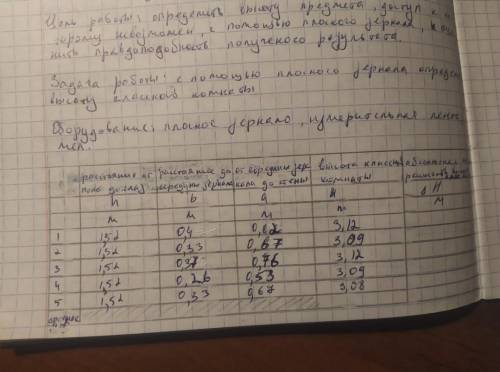 Цель работы: определить высоту предмета, доступ к
торому невозможен, с помощью плоского зеркала,
нить правдоподобность полученого результата.
Задача работы: с помощью плоского зеркала опреде
высоту классной комнаты
Оборудование: плоское зеркало, измерительная лен
мел.
расстояние от расстояние до от середины зер высота классн
пола до глаз середины зеркала кала до стены комнаты
h b a H H
м м м м м
1 1,52 0,4 0,82 3,12
2 1,52 0,33 0,67 3,09
3 1,52 0,37 0,76 3,12
4 1,52 0,26 0,53 3,09
5 1,52 0,33 0,67 3,08